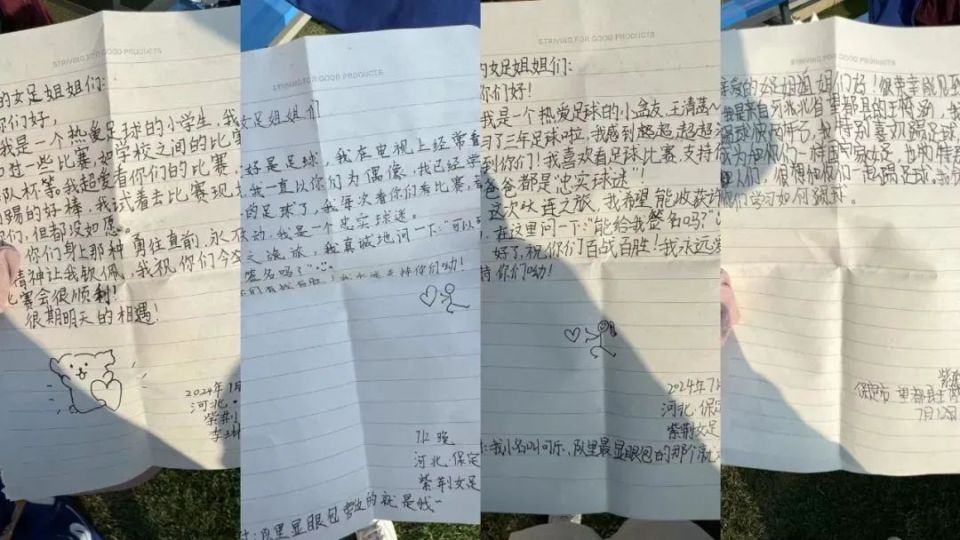 STRIVING FOR GOOD PRODUCTS
的女足姐姐们:
你们好,
我是一个热爱足球的小学生,我
过一些比赛,如学校之间的比赛
队杯等。我超爱看你们的比赛,
踢的好棒,我试着去比赛现
你们,但都没如愿。
你们身上那种勇往直前,永不
精神让我钦佩,我祝你们今
比赛会很顺利!
很期明天的相遇!
2024年7月
河北·
紫荆
STRIVING FOR GOOD PRODUCTS
女足姐姐们
好是足球,我在电视上经常看
我一直以你们为偶像,我已经学
的足球了,我每次看你们看比赛,
动,我是一个忠实球迷。
之连旅,我真诚地问一下:“可以
签名吗?”
们百战百胜!我永远支持你们呦!
7.12 晚
河北.保定
紫荆女足
队里显眼包字次的就是我~
STRIVING FOR GOOD PRODUCTS
的女足姐姐们:
你们好!
我是一个热爱足球的小盆友,王清菡~
习了三年足球啦,我感到超超超超
到你们!我喜欢看足球比赛,支持你
爸爸都是“忠实球迷”!
这次大连之旅,我希望能收获许
在这里问一下:“能给我签名吗?”
好了,祝你们百战百胜!我永远
持你们呦!
2024年7.1
河北.保定
紫荆女足
:我小名叫可乐,队里最显眼包的那个就
STRIVING FOR GOOD PRODUCTS
亲爱的女足姐姐们好!很荣幸能见到
我是来自河北省望都县的王
踢球快两年了,我特别喜欢踢足球
为她们
人们,很想和你们一起踢足球。
们学习如何踢球。
紫荆
保定市 望都县
7月12日